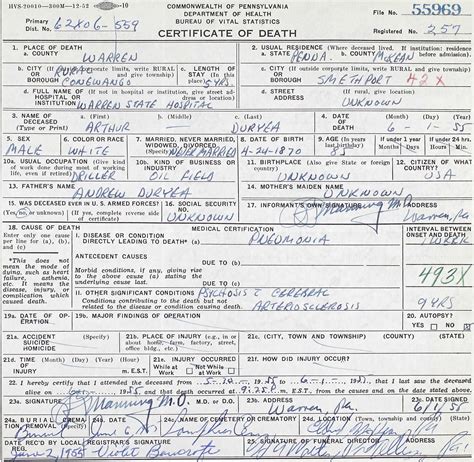 HVS-20010—300M—12-52 10
COMMONWEALTH OF PENNSYLVANIA
DEPARTMENT OF HEALTH
BUREAU OF VITAL STATISTICS
File No. 55969
Primary Dist. No. 62X06-559
CERTIFICATE OF DEATH
Registered No. 257
1. PLACE OF DEATH
a. COUNTY WARREN
2. USUAL RESIDENCE (Where deceased lived. If institution: residence before admission)
a. STATE PENNA. b. COUNTY McKEAN
b. CITY (If outside corporate limits, write RURAL and give township)
OR BORO RURAL CONEWANGO
c. LENGTH OF STAY (In this place) 5 YRS
c. CITY (If outside corporate limits, write RURAL and give township)
OR BORO SMETHPORT 42X
d. FULL NAME OF HOSPITAL OR INSTITUTION (If not in hospital or institution, give street address or location)
WARREN STATE HOSPITAL
d. STREET ADDRESS (If rural, give location)
UNKNOWN
3. NAME OF DECEASED (Type or Print)
a. (First) b. (Middle) c. (Last)
ARTHUR DURYEA
4. DATE OF DEATH (Month) (Day) (Year)
6-1-55
5. SEX MALE
6. COLOR OR RACE WHITE
7. MARRIED, NEVER MARRIED, WIDOWED, DIVORCED (Specify)
NEVER MARRIED
8. DATE OF BIRTH 4-24-1870
9. AGE (In years last birthday) 85
If under 1 year Months Days
If under 24 hrs. Hours Min.
10a. USUAL OCCUPATION (Give kind of work done during most of working life, even if retired)
DRILLER
10b. KIND OF BUSINESS OR INDUSTRY
OIL FIELD
11. BIRTHPLACE (Also give State or Foreign country)
UNKNOWN
12. CITIZEN OF WHAT COUNTRY?
USA
13. FATHER'S NAME
ANDREW DURYEA
14. MOTHER'S MAIDEN NAME
UNKNOWN
15. WAS DECEASED EVER IN U. S. ARMED FORCES?
(Yes, no, or unknown) (If yes, complete reverse side of certificate)
16. SOCIAL SECURITY NO.
UNKNOWN
17. INFORMANT'S OWN SIGNATURE ADDRESS
Manning M.D. Warren, Pa.
18. CAUSE OF DEATH
Enter only one cause per line for (a), (b), and (c)
MEDICAL CERTIFICATION
INTERVAL BETWEEN ONSET AND DEATH
I. DISEASE OR CONDITION DIRECTLY LEADING TO DEATH* (a) PNEUMONIA
*This does not mean the mode of dying, such as heart failure, asthenia, etc. It means the disease, injury, or complication which caused death.
ANTECEDENT CAUSES DUE TO (b)
Morbid conditions, if any, giving rise to the above cause (a) stating the underlying cause last.
DUE TO (c)
493X
II. OTHER SIGNIFICANT CONDITIONS
Conditions contributing to the death but not related to the disease or condition causing death.
PSYCHOSIS c CEREBRAL ARTERIOSCLEROSIS
9 YRS
19a. DATE OF OPERATION
19b. MAJOR FINDINGS OF OPERATION
20. AUTOPSY? YES NO
21a. ACCIDENT SUICIDE HOMICIDE
21b. PLACE OF INJURY (e.g., in or about home, farm, factory, street, office bldg., etc.)
21c. (CITY, TOWN OR TOWNSHIP) (COUNTY) (STATE)
21d. TIME OF INJURY (Month) (Day) (Year) (Hour) m. E.S.T.
21e. INJURY OCCURRED
While At Work Not While At Work
21f. HOW DID INJURY OCCUR?
22. I hereby certify that I attended the deceased from 5-10-1955 to 6-1-1955 that I last saw the deceased alive on 1955, and that death occurred at 9:25 P. m. E.S.T., from the causes and on the date stated above.
23a. SIGNATURE M.D. or D.O.
Manning M.D.
23b. ADDRESS
Warren Pa.
23c. DATE SIGNED
6/1/55
24a. BURIAL, CREMATION, REMOVAL
24b. DATE
24c. NAME OF CEMETERY OR CREMATORY
24d. LOCATION (Town, township, county) (State)
DATE REC'D BY LOCAL REG.
June 2, 1955
REGISTRAR'S SIGNATURE
Violet Bancroft
25. SIGNATURE OF FUNERAL DIRECTOR ADDRESS